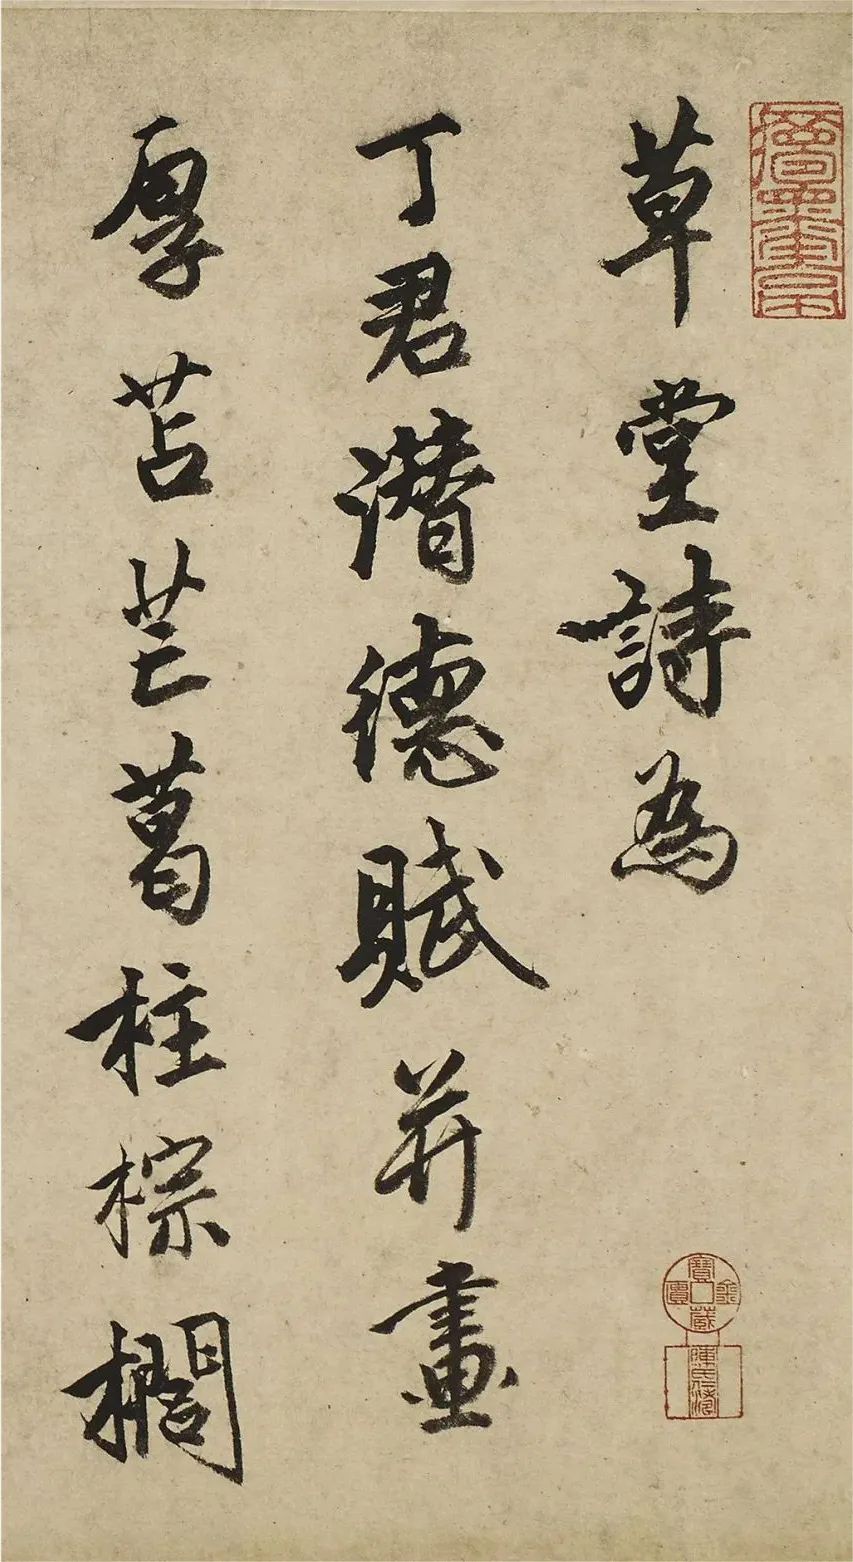 草堂詩為
丁君潛德賦并畫
厚苫芒葛柱棕櫚